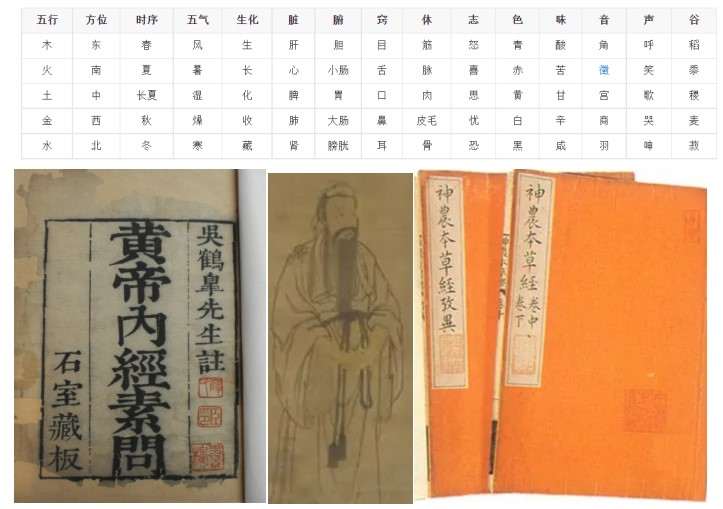 五行 方位 时序 五气 生化 脏 腑 窍 体 志 色 味 音 声 谷
木 东 春 风 生 肝 胆 目 筋 怒 青 酸 角 呼 稻
火 南 夏 暑 长 心 小肠 舌 脉 喜 赤 苦 徵 笑 黍
土 中 长夏 湿 化 脾 胃 口 肉 思 黄 甘 宫 歌 稷
金 西 秋 燥 收 肺 大肠 鼻 皮毛 忧 白 辛 商 哭 麦
水 北 冬 寒 藏 肾 膀胱 耳 骨 恐 黑 咸 羽 呻 菽
吳鶴臯先生註
黄帝内經素問
石室藏板
神農本草經攷異
神農本草經 卷中 卷下